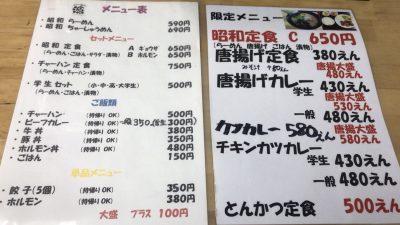 メニュー表
昭和 らーめん 590円
昭和 ちゃーしゅうめん 690円
セットメニュー
昭和 定食 A キョウザ 650円
(らーめん・ごはん・サラダ・漬物) B ホルモン 650円
チャーハン 定食 750円
(らーめん・チャーハン・漬物)
学生 セット (小・中・高・大学生) 500円
(らーめん・ごはん・漬物)
ご飯類
チャーハン (持帰り OK) 500円
ビーフカレー (持帰り OK) 350 (学生 300円)
牛丼 (持帰り OK) 380円
豚丼 (持帰り OK) 350円
ホルモン丼 (持帰り OK) 480円
ごはん 150円
単品メニュー
餃子(5個) (持帰り OK) 350円
ホルモン (持帰り OK) 380円
大盛 プラス 100円
限定メニュー
昭和定食 C 650円
(らーめん 唐揚げ ごはん 漬物)
唐揚げ定食 380えん
みそ汁
唐揚大盛
480えん
唐揚げカレー
学生 430えん
唐揚大盛 530えん
一般 480えん
唐揚大盛 580えん
カツカレー 580えん
チキンカツカレー
学生 430えん
一般 480えん
とんかつ定食 500えん